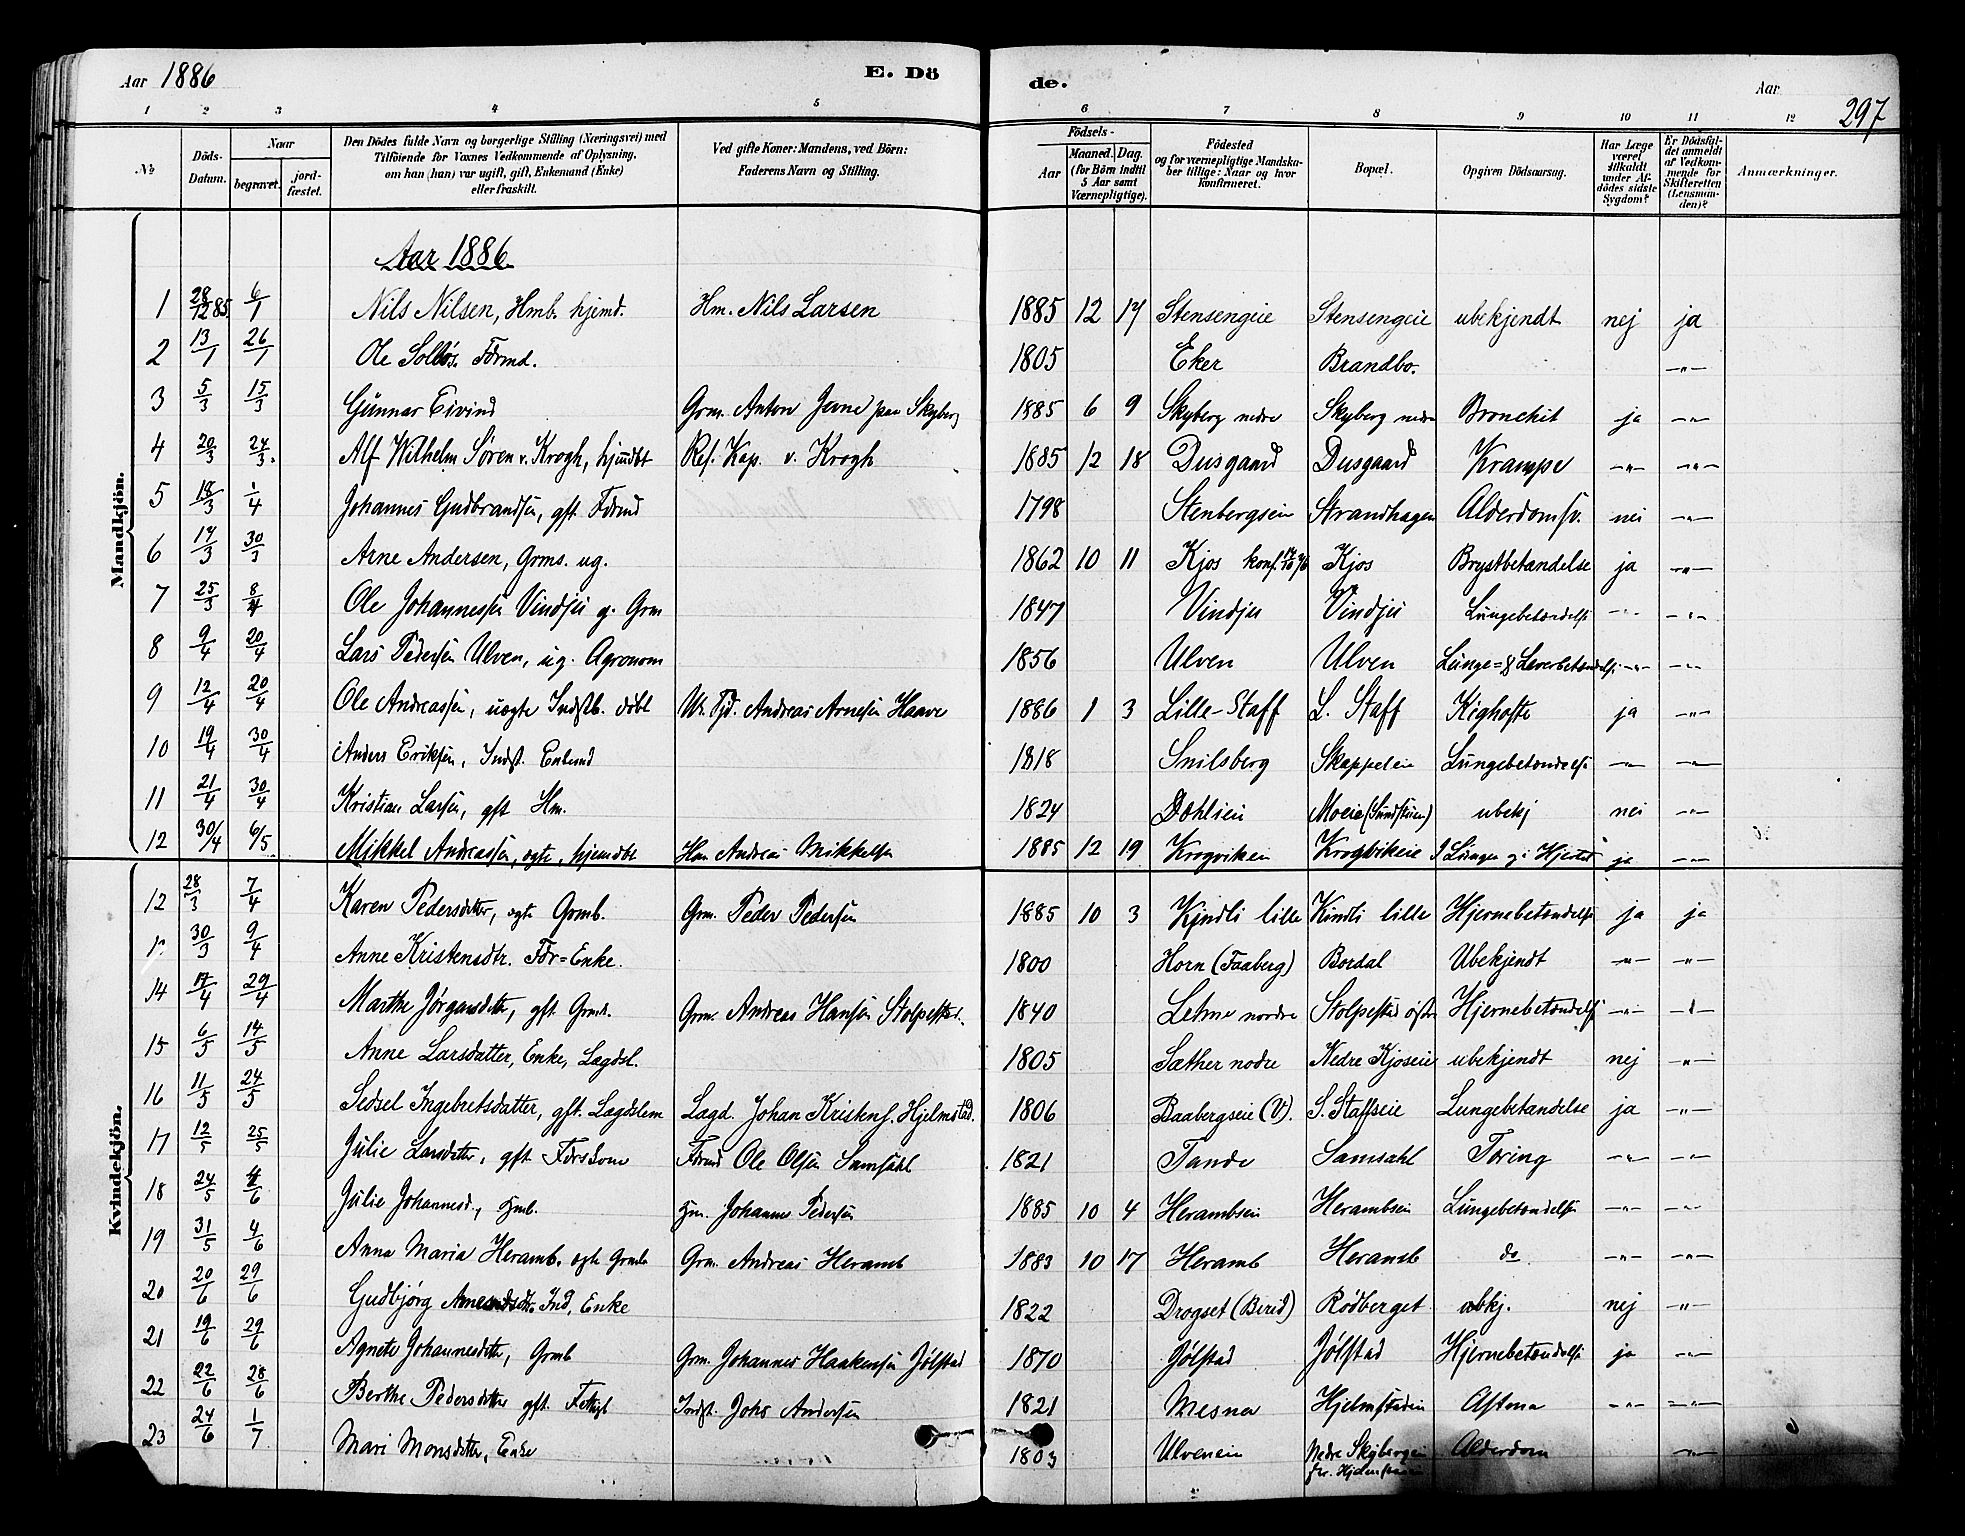 Aar 1886 E. Dö de. Aar 297
1 2 3 4 5 6 7 8 9 10 11 12
No Döds-Datum. Naar begravet. jord-fæstet. Den Dödes fulde Navn og borgerlige Stilling (Næringsvei) med Tilföiende for Voxnes Vedkommende af Oplysning, om han (hun) var ugift, gift, Enkemand (Enke) eller fraskilt. Ved gifte Koner: Mandens, ved Börn: Faderens Navn og Stilling. Födsels- Aar Maaned. Dag. (for Börn indtil 5 Aar samt Værnepligtige). Födested og for værnepligtige Mandska- ber tillige: Naar og hvor konfirmeret. Bopæl. Opgiven Dödsaarsag. Har Læge været tilkaldt under Af- dödes sidste Sygdom? Er Dödsfal- det anmeldt af Vedkom- mende for Skifteretten (Lensman- den)? Anmærkninger.
Mandkjön.
Aar 1886
1 28/12 85 6/1 Nils Nilsen, Hmb. hjemd. Hm. Nils Larsen 1885 12 17 Stensengeie Stensengeie ubekjendt nej ja
2 13/1 26/1 Ole Solbös. Fdrmd. 1805 Eker Brandbo. -"-
3 5/3 15/3 Gunnar Eivind Grm. Anton Jevne paa Skyberg 1885 6 9 Skyberg nedre Skyberg nedre Bronchit ja -"-
4 20/3 24/3. Alf Wilhelm Sören v. Krogh, hjemdbt Rs. Kap. v. Krogh 1885 12 18 Dusgaard Dusgaard Krampe -"- -"-
5 18/3 1/4 Johannes Gudbrandsen, gft. Fdrmd 1798 Stenbergseie Strandhagen Alderdomsv. nei -"-
6 14/3 30/3 Arne Andersen, Grms. ug. 1862 10 11 Kjos konf. Kjos Brystbetændelse ja -"-
7 25/3 8/4 Ole Johannessen Vindju g. Grm 1847 Vindju Vindju Lungebetændelse -"- -"-
8 9/4 20/4 Lars Pedersen Ulven, ug. Agronom 1856 Ulven Ulven Lunge=& Leverbetændelse -"- -"-
9 12/4 20/4 Ole Andreassen, uægte Indstb. döbt Uk. Tjd. Andreas Arnesen Haave 1886 1 3 Lille-Staff L. Staff Kighoste ja -"-
10 19/4 30/4 Anders Eriksen, Indst. Enkemd 1818 Snilsberg Skappeleie Lungebetændelse -"- -"-
11 21/4 30/4 Kristian Larsen, gft Hm. 1824 Dæhlieie Moeie (Sundstuen) ubekj nei -"-
12 30/4 6/5 Mikkel Andreassen, ægte, hjemdbt Hm Andreas Mikkelsen 1885 12 19 Krogviken Krogvikeie I Lungen og i Hjertet ja -"-
Kvindekjön.
12 28/3 7/4 Karen Pedersdatter, ægte Grmb. Grm. Peder Pedersen 1885 10 3 Kjndli lille Kindli lille Hjernebetændelse ja ja
30/3 9/4 Anne Kristensdtr. Fdr=Enke. 1800 Horn (Faaberg) Bordal Ubekjendt -"- -"-
14 17/4 29/4 Marthe Jörgensdatter, gft. Grmk. Grm. Andreas Hansen Stolpestad. 1840 Letme nordre Stolpestad östre Hjernebetændelse -"- -"-
15 6/5 14/5 Anne Larsdatter, Enke, Lægdsl. 1805 Sæther nodre Nedre Kjoseie ubekjendt nej -"-
16 11/5 24/5 Sidsel Ingebretsdatter, gft. Lægdslem Lægd. Johan Kristens. Hjelmstad. 1806 Baabergseie (V). S. Staffseie Lungebetændelse ja -"-
17 12/5 25/5 Julie Larsdatter, gft Fdrskone Fdrmd Ole Olsen Samsahl 1821 Tande Samsahl Tæring -"- -"-
18 24/5 4/6 Julie Johannesd., Hmb. Hm. Johannes Pedersen 1885 10 4 Herambseie Herambseie Lungebetændelse -"- -"-
19 31/5 4/6 Anna Maria Heramb. ægte Grmb. Grm. Andreas Heramb 1883 10 17 Heramb Heramb do -"- -"-
20 20/6 29/6 Gudbjørg Ind, Enke 1822 Drogset (Birid) Rödberget ubkj. nej -"-
21 19/6 29/6 Agnete Johannesdatter, Grmb Grm. Johannes Haakensen Jölstad 1870 Jölstad Jölstad Hjernebetændelse ja -"-
22 22/6 28/6 Berthe Pedersdatter gft. Indst. Johs Andersen 1821 Mesna Hjelmstadeie Astma -"- -"-
23 24/6 1/7 Mari Monsdatter, Enke 1803 Ulveneie Nedre Skybergeie Alderdom -"-
fr. Hjelmstadeie